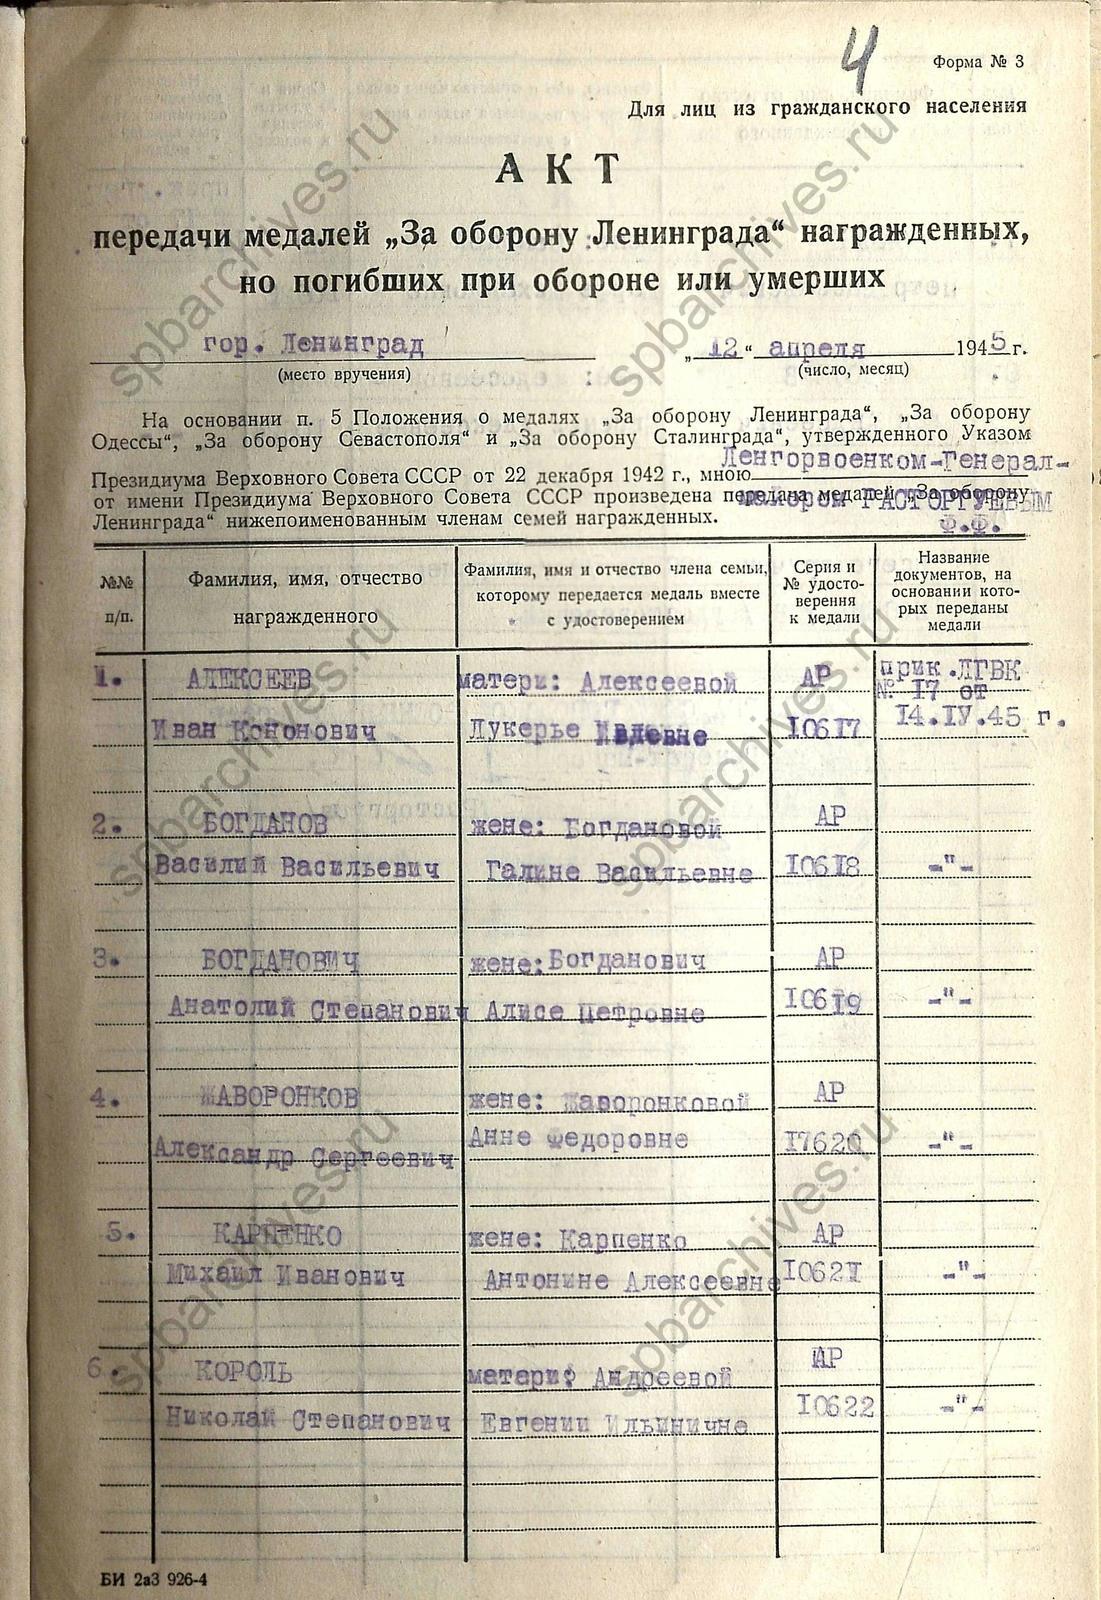 4
Форма № 3
Для лиц из гражданского населения
АКТ
передачи медалей „За оборону Ленинграда“ награжденных,
но погибших при обороне или умерших
гор. Ленинград „12“ апреля 1945 г.
(место вручения) (число, месяц)
На основании п. 5 Положения о медалях „За оборону Ленинграда“, „За оборону
Одессы“, „За оборону Севастополя“ и „За оборону Сталинграда“, утвержденного Указом
Президиума Верховного Совета СССР от 22 декабря 1942 г., мною Ленгорвоенком-Генерал-
майором РАСТОРГУЕВЫМ
Ф.Ф.
от имени Президиума Верховного Совета СССР произведена передача медалей „За оборону
Ленинграда“ нижепоименованным членам семей награжденных.
№№ п/п.
Фамилия, имя, отчество
награжденного
Фамилия, имя и отчество члена семьи,
которому передается медаль вместе
с удостоверением
Серия и
№ удосто-
верения
к медали
Название
документов, на
основании кото-
рых переданы
медали
1. АЛЕКСЕЕВ матери: Алексеевой АР прик.ЛГВК
№ 17 от
Иван Кононович Лукерье Иевлевне 10617 14.IV.45 г.
2. БОГДАНОВ жене: Богдановой АР
Василий Васильевич Галине Васильевне 10618 -"-
3. БОГДАНОВИЧ жене:Богданович АР
Анатолий Степанович Алисе Петровне 10619 -"-
4. ЖАВОРОНКОВ жене: Жаворонковой АР
Александр Сергеевич Анне Федоровне 17620 -"-
5. КАРПЕНКО жене: Карпенко АР
Михаил Иванович Антонине Алексеевне 10621 -"-
6. КОРОЛЬ матери: Андреевой АР
Николай Степанович Евгении Ильиничне 10622 -"-
БИ 2а3 926-4
spbarchives.ru
spbarchives.ru
spbarchives.ru
spbarchives.ru
spbarchives.ru
spbarchives.ru